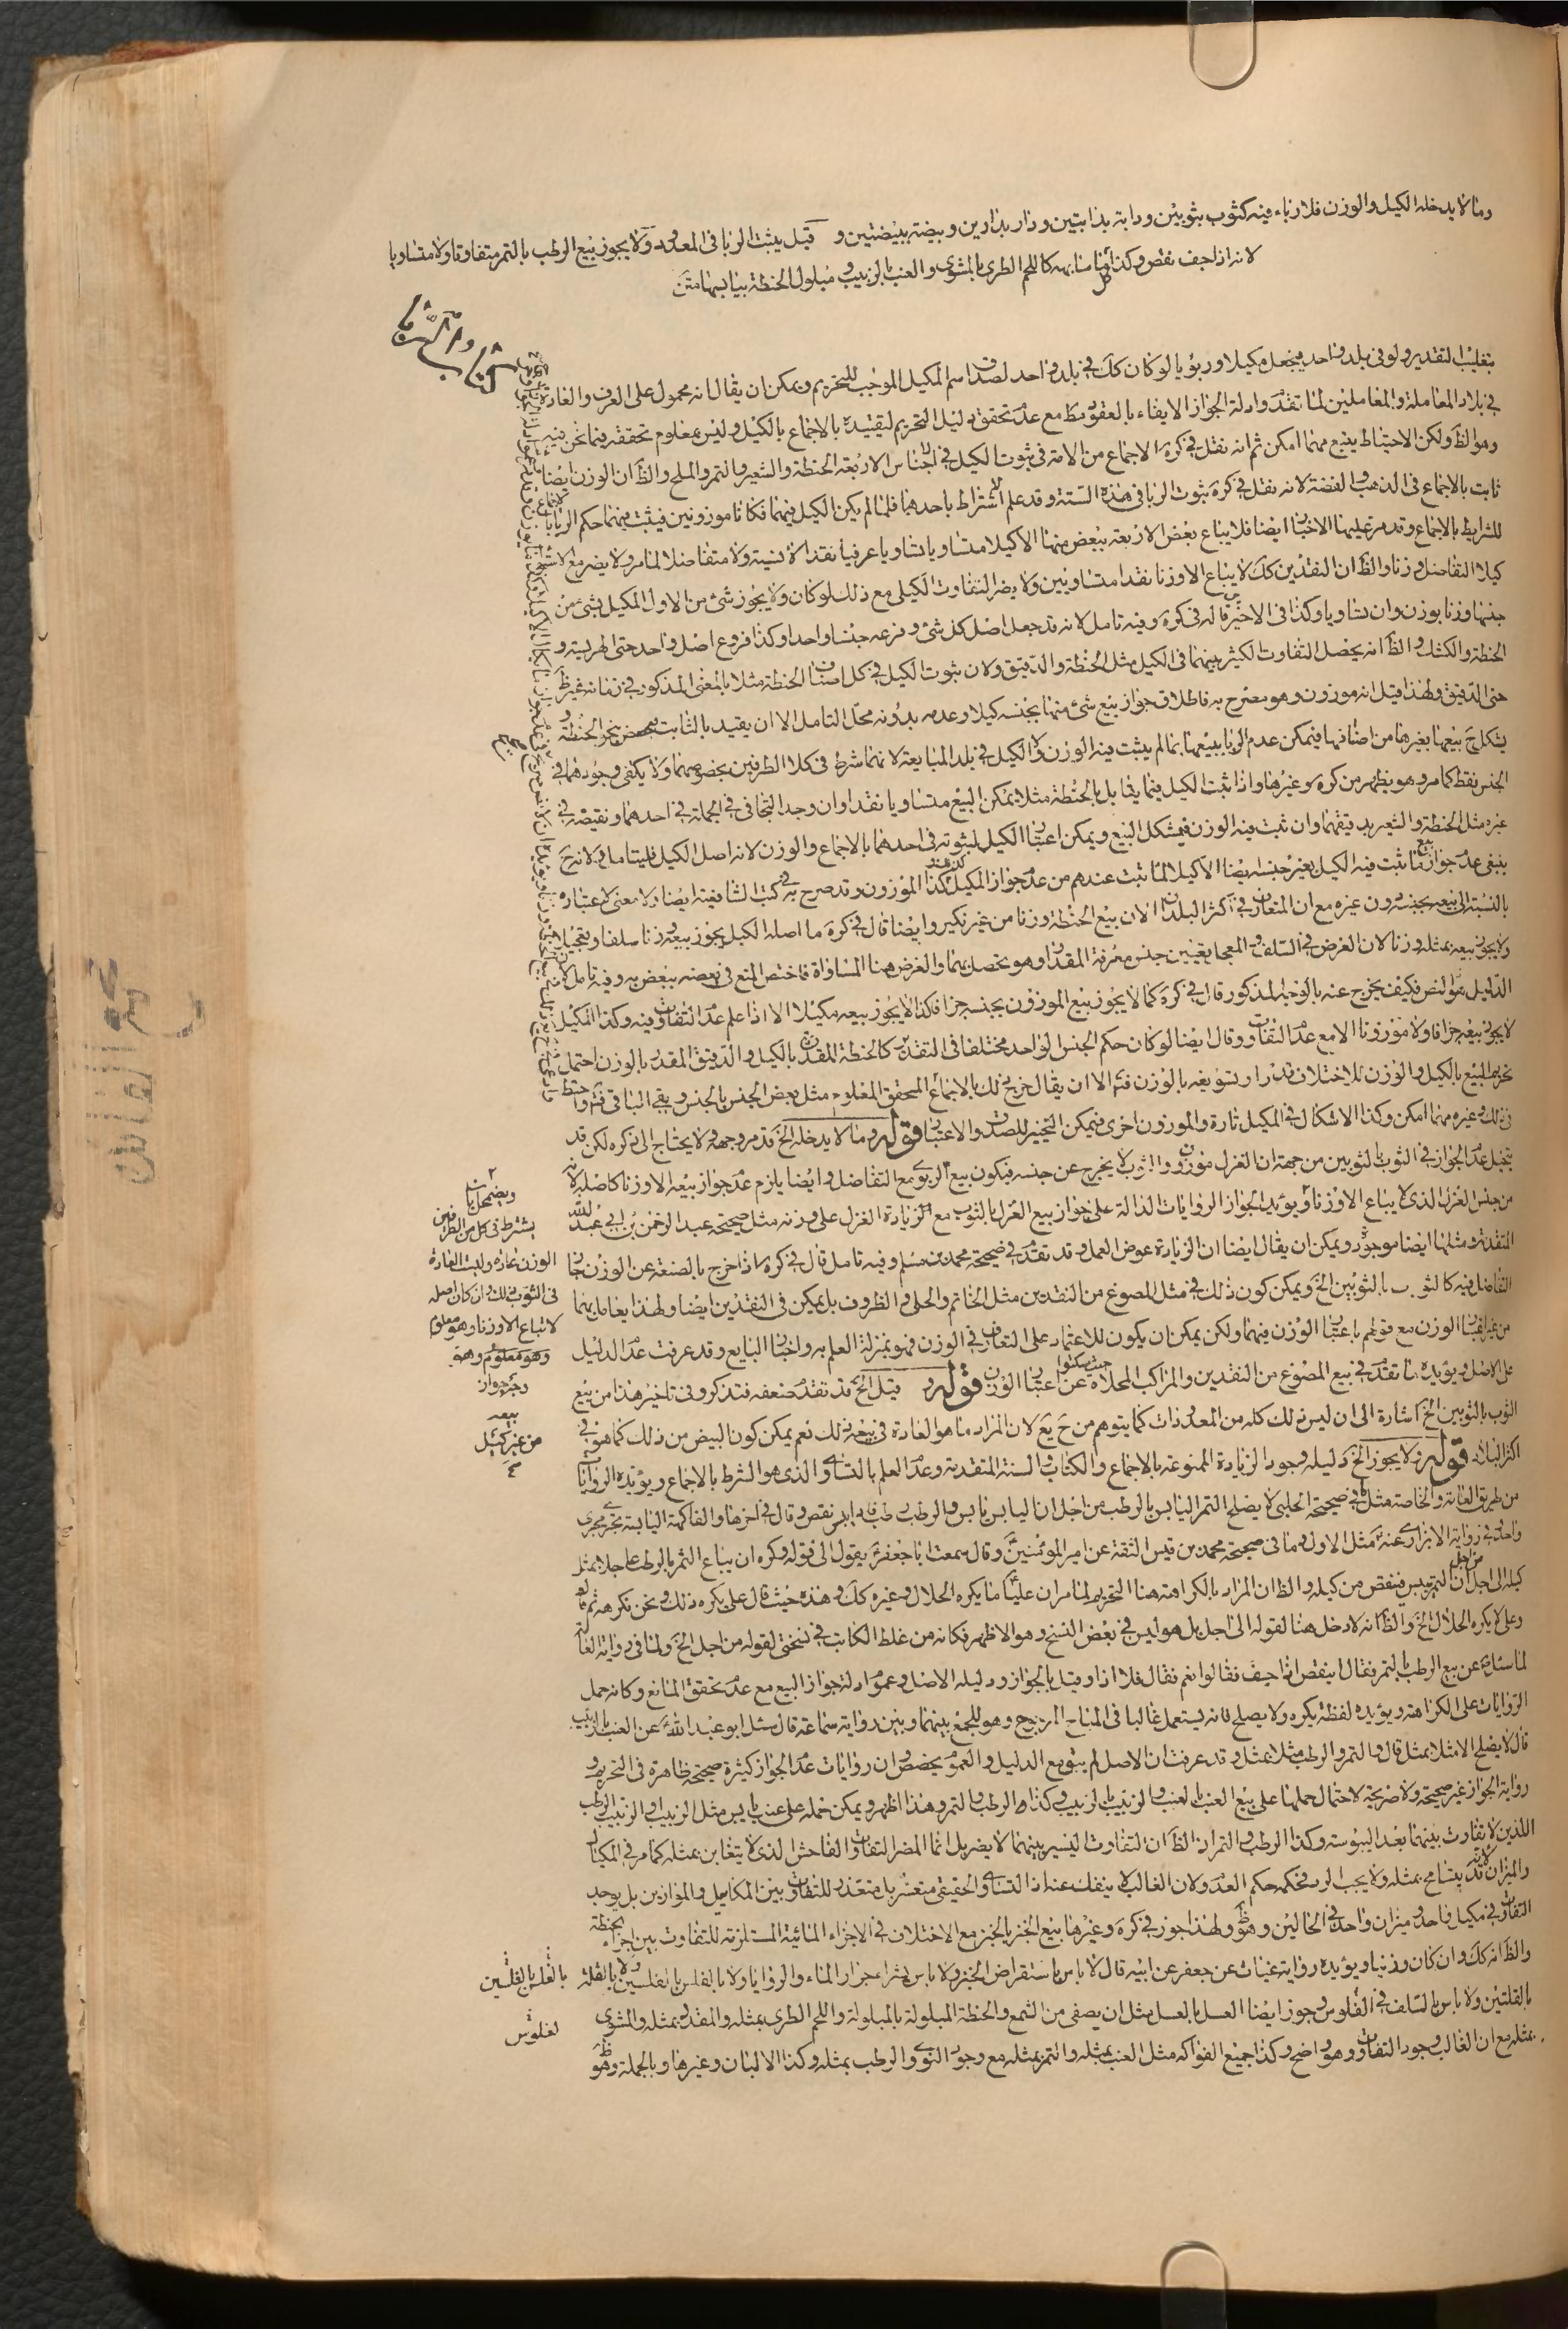 وما لا يدخله الكيل والوزن فلا رباء فيه كثوب بثوبين ودابة بدابتين ودار بدارين وبيضة ببيضتين و قيل يثبت الربا في المعدود ولا يجوز بيع الرطب بالتمر متفاوتا ولا متساويا
لانه اذا جف نقص وكذا كل ما شابهه كاللحم الطري بالمشوي والعنب بالزبيب ومبلول الحنطة بيابسها متن
بتغليب التقدير ولو في بلد واحد فيجعل مكيلا وربويا لو كان كك في بلد واحد لصدق اسم المكيل الموجب للتحريم ويمكن ان يقال انه محمول على العرف والعادة
في بلاد المعاملة والمعاملين لما تقدم وادلة الجواز الايفاء بالعقود مع عدم تحقق دليل التحريم لتقييده بالاجماع بالكيل وليس بمعلوم تحققه فيما نحن فيه
وهو الظ ولكن الاحتياط يتبع مهما امكن ثم انه نقل في كره الاجماع من الامة في ثبوت الكيل في الاجناس الاربعة الحنطة والشعير والتمر والملح والظ ان الوزن ايضا
ثابت بالاجماع في الذهب والفضة لانه نقل في كره ثبوت الربا في هذه الستة وقد علم اشتراط باحدهما فلما لم يكن الكيل فيهما فكانا موزونين فيثبت فيهما حكم الربا
للشرايط بالاجماع وقد مر عليهما الاخبار ايضا فلا يباع بعض الاربعة ببعض منهما الا كيلا متساويا تساويا عرفيا نقدا لا نسية ولا متفاضلا لما مر ولا يضر مع الاستواء
كيلا التفاضل وزنا والظ ان النقدين كك لا يباع الا وزنا نقدا متساويين ولا يضر التفاوت الكيلي مع ذلك لو كان ولا يجوز شئ من الاول المكيل بشئ من
جنسها وزنا بوزن وان تساويا وكذا في الاخير قاله في كره وفيه تامل لانه قد جعل اصل كل شئ وفرعه جنسا واحدا وكذا فروع اصل واحد حتى الهريسة و
الحنطة والكشك والظ انه يحصل التفاوت الكثير بينهما في الكيل مثل الحنطة والدقيق ولان ثبوت الكيل في كل اصناف الحنطة مثلا بالمعنى المذكور في زمانه غير ظ
حتى الدقيق ولهذا قيل انه موزون وهو مصرح به فاطلاق جواز بيع شئ منهما بجنسه كيلا وعدمه بدونه محل التامل الا ان يقيد بالثابت نحو الحنطة و
يشكل ح بيعها بغيرها من اصنافها فيمكن عدم الربا ببيعها بما لم يثبت فيه الوزن ولا الكيل في بلد المبايعة لانهما شرط في كلا الطرفين بخصوصهما ولا يكفي وجودهما في
الجنس فقط كما مر وهو يظهر من كره وغيرها واذا ثبت الكيل فيما يقابل بالحنطة مثلا يمكن البيع متساويا نقدا وان وجد التجافي في الجملة في احدهما ونقيضه في
غيره مثل الحنطة والشعير بدقيقهما وان ثبت فيه الوزن فيشكل البيع ويمكن اعتبار الكيل لثبوته في احدهما بالاجماع والوزن لانه اصل الكيل
ينبغي عدم جواز بيع ما ثبت فيه الكيل بغير جنسه ايضا الا كيلا لما ثبت عندهم من عدم جواز المكيل كذا الموزون وقد صرح به في كتب الشافعية ايضا ولا معنى لاعتباره
بالنسبة الى بيعه بجنسه دون غيره مع ان المتعارف في اكثر البلدان الان بيع الحنطة وزنا من غير نكير وايضا قال في كره ما اصله الكيل يجوز بيعه وزنا سلفا وتعجيلا
ولا يجوز بيعه بمثله وزنا لان الغرض في السلف والمعجل تعيين جنس معرفة المقدار وهو يحصل بهما والغرض هنا المساواة فاختص المنع في بعضه ببعض به وفيه تامل لان
الدليل هو النص فكيف يخرج عنه بالوجه المذكور قال في كره كما لا يجوز بيع الموزون بجنسه جزافا كذا لا يجوز بيعه مكيلا الا اذا علم عدم التفاوت فيه وكذا المكيل
لا يجوز بيعه جزافا ولا موزونا الا مع عدم التفاوت وقال ايضا لو كان حكم الجنس الواحد مختلفا في التقدير كالحنطة المقدرة بالكيل والدقيق المقدر بالوزن احتمل
تحريم البيع بالكيل والوزن للاختلاف قدرا وتسويغه بالوزن فتم الا ان يقال خرج ذلك بالاجماع المحقق المعلوم مثل بعض الجنس بالجنس وبقي الباقي فتم واحتط
في ذلك وغيره مهما امكن وكذا الاشكال في المكيل تارة والموزون اخرى فيمكن التخيير للصدق والاعتبار قوله وما لا يدخله الخ قد مر وجهه ولا يحتاج الى ذكره لكن قد
يتخيل عدم الجواز في الثوب بالثوبين من جهة ان الغزل موزون والثوب لا يخرج عن جنسه فيكون بيع الربوي مع التفاضل وايضا يلزم عدم جواز بيعه الا وزنا كاصله لانه
من جنس الغزل الذي لا يباع الا وزنا ويؤيد الجواز الروايات الدالة على جواز بيع الغزل بالثوب مع الزيادة الغزل على وزنه مثل صحيحة عبد الرحمن بن ابي عبد الله
المتقدمة ومثلها ايضا موجود ويمكن ان يقال ايضا ان الزيادة عوض العمل وقد تقدم في صحيحة محمد بن مسلم وفيه تامل قال في كره اذا خرج بالصنعة عن الوزن جاز
التفاضل فيه كالثوب بالثوبين الخ ويمكن كون ذلك في مثل المصوغ من النقدين مثل الخاتم والحلي والظروف بل يمكن في النقدين ايضا ولهذا يعامل بهما
من غير اعتبار الوزن مع قولهم باعتبار الوزن فيهما ولكن يمكن ان يكون للاعتماد على التعارف في الوزن فهو بمنزلة العلم به واخبار البايع وقد عرفت عدم الدليل
على الاصل ويؤيده ما تقدم في بيع المصوغ من النقدين والمراكب المحلاة حيث سكتوا عن اعتبار الوزن قوله قيل الخ قد تقدم ضعفه فتذكر وفي تاخير هذا من بيع
الثوب بالثوبين الخ اشارة الى ان ليس ذلك كله من المعدودات كما يتوهم من ح يع لان المراد ما هو العادة في بيعه ذلك نعم يمكن كون البيض من ذلك كما هو في
اكثر البلاد قوله ولا يجوز الخ دليله وجود الزيادة الممنوعة بالاجماع والكتاب والسنة المتقدمة وعدم العلم بالتساوي الذي هو الشرط بالاجماع ويؤيده الروايات
من طريق العامة والخاصة مثل ما في صحيحة الحلبي لا يصلح التمر اليابس بالرطب من اجل ان اليابس يابس والرطب رطب فاذا يبس نقص وقال في اخرها والفاكهة اليابسة تجري مجرى
واحد وفي رواية الابزاري عنه مثل الاول وما في صحيحة محمد بن قيس الثقة عن امير المؤمنين وقال سمعت ابا جعفر يقول الى قوله وكره ان يباع التمر بالرطب عاجلا بمثل
كيله الى اجل من اجل ان التمر ييبس فينقص من كيله والظ ان المراد بالكراهة هنا التحريم لما مر ان عليا ما يكره الحلال وغيره كك وهذه حيث قال علي يكره ذلك ونحن نكرهه
وعلي لا يكره الحلال الخ والظ انه لا دخل هنا لقوله الى اجل بل هو ليس في بعض النسخ وهو الاظهر فكانه من غلط الكاتب في نسختي لقوله من اجل الخ ولما في رواية العامة
لما سئل عن بيع الرطب بالتمر فقال اينقص اذا جف فقالوا نعم فقال فلا اذا وقيل بالجواز ودليله الاصل وعموم ادلة جواز البيع مع عدم تحقق المانع وكانه حمل
الروايات على الكراهة ويؤيده لفظة يكره ولا يصلح فانه يستعمل غالبا في المباح المرجوح وهو للجمع بينهما وبين رواية سماعة قال سئل ابو عبد الله عن العنب بالزبيب
قال لا يصلح الا مثلا بمثل قال والتمر والرطب مثلا بمثل وقد عرفت ان الاصل لم يبق مع الدليل والعموم يخصص وان روايات عدم الجواز كثيرة صحيحة ظاهرة في التحريم و
رواية الجواز غير صحيحة ولا صريحة لاحتمال حملها على بيع العنب بالعنب والزبيب بالزبيب وكذا الرطب والتمر وهذا اظهر ويمكن حمله على عنب يابس مثل الزبيب او الزبيب الرطب
اللذين لا تفاوت بينهما بعد اليبوسة وكذا الرطب والتمر اذ الظ ان التفاوت اليسير بينهما لا يضر بل انما المضر التفاوت الفاحش الذي لا يتغابن بمثله كما مر في المكيال
والميزان لانه قد يتسامح بمثله ولا يجب الرد فحكمه حكم العدم ولان الغالب لا ينفك عنه اذ التساوي الحقيقي متعسر بل متعذر للتفاوت بين المكاييل والموازين بل يوجد
التفاوت في مكيل واحد وميزان واحد في الحالين وهو ظ ولهذا جوز في كره وغيرها بيع الخبز بالخبز مع الاختلاف في الاجزاء المائية المستلزمة للتفاوت بين اجزاء الحنطة
والظ انه كك وان كان وزنيا ويؤيده رواية غياث عن جعفر عن ابيه قال لا باس باستقراض الخبز ولا باس بشراء جرار الماء والروايا ولا بالفلس بالفلسين ولا بالقلة
بالقلتين ولا باس بالسلف في الفلوس وجوز ايضا العسل بالعسل مثل ان يصفى من الشمع والحنطة المبلولة بالمبلولة واللحم الطري بمثله والمقدد بمثله والمشوي
بمثله مع ان الغالب وجود التفاوت وهو واضح وكذا جميع الفواكه مثل العنب بمثله والتمر بمثله مع وجود النوى والرطب بمثله وكذا الالبان وغيرها وبالجملة وهو ظ
ويضمحل بان
يشترط في كل من الطرفين
الوزن عادة وليست العادة
في الثوب ذلك وان كان اصله
لا تباع الا وزنا وهو معلوم
وهو معلوم وهو
وجه جواز
بيعه
من غير كيل
بالفلس بالفلسين
لفلوس